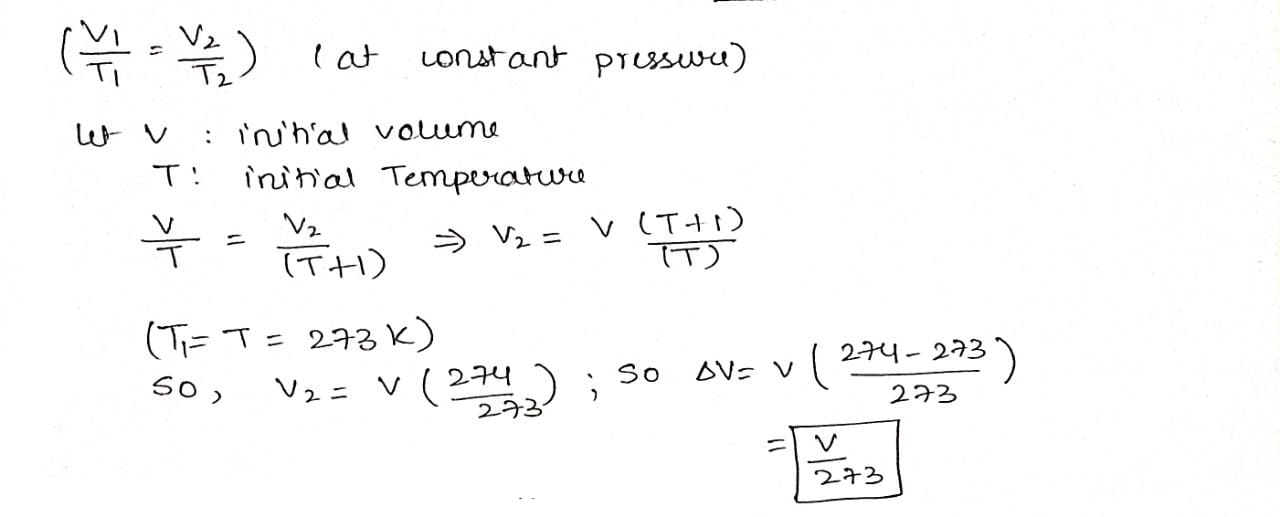 (V1/T1 = V2/T2) (at constant pressure)
let V : initial volume
T: initial Temperature
V/T = V2/(T+1) ⇒ V2 = V (T+1)/(T)
(T1= T = 273 K)
so, V2 = V (274/273) ; so ΔV= V (274-273/273)
= V/273